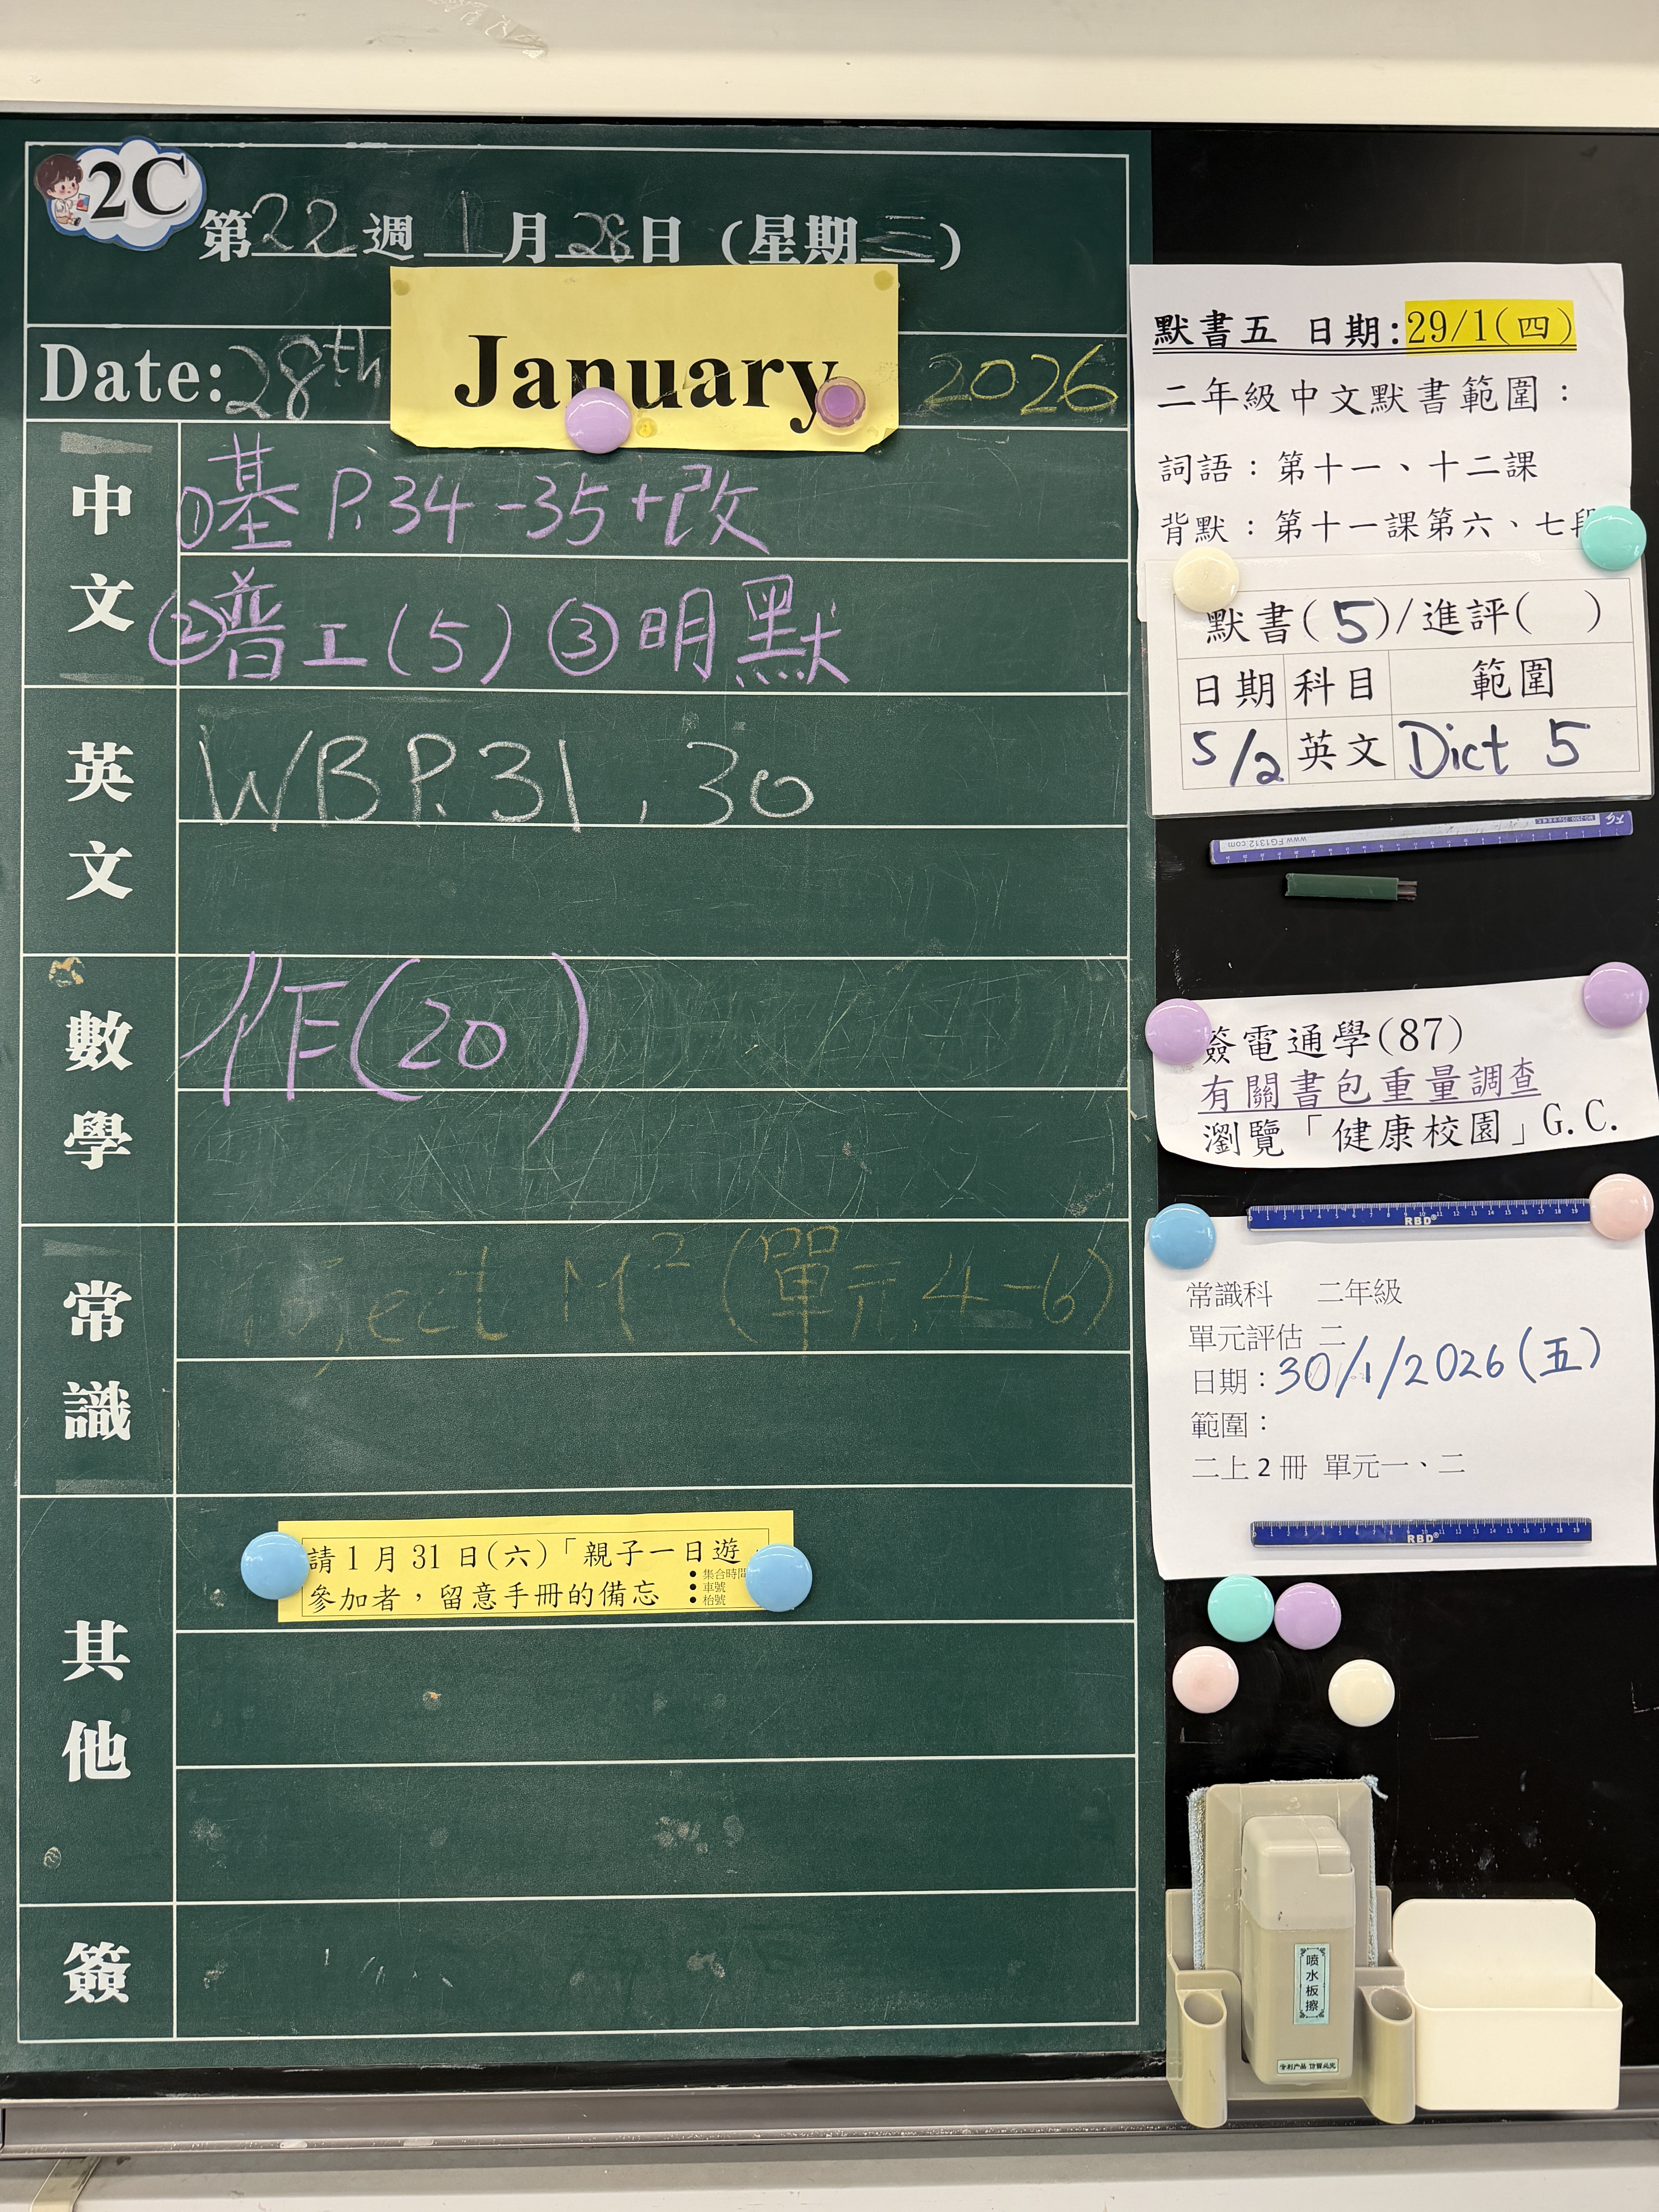 2C
第22週 1月28日 (星期三)
Date: 28th January 2026
中文
①基 P.34-35+改
②普工(5) ③明默
英文
WB P.31, 30
數學
作(20)
常識
ject M² (單元4-6)
其他
請1月31日(六)「親子一日遊」
參加者,留意手冊的備忘
● 集合時間
● 車號
● 枱號
簽
默書五 日期:29/1(四)
二年級中文默書範圍:
詞語:第十一、十二課
背默:第十一課第六、七段
默書(5)/進評( )
日期 科目 範圍
5/2 英文 Dict 5
www.FG1312.com
簽電通學(87)
有關書包重量調查
瀏覽「健康校園」G.C.
RBD®
常識科 二年級
單元評估 二
日期:30/1/2026(五)
範圍:
二上2冊 單元一、二
RBD®
喷水板擦
专利产品 仿冒必究